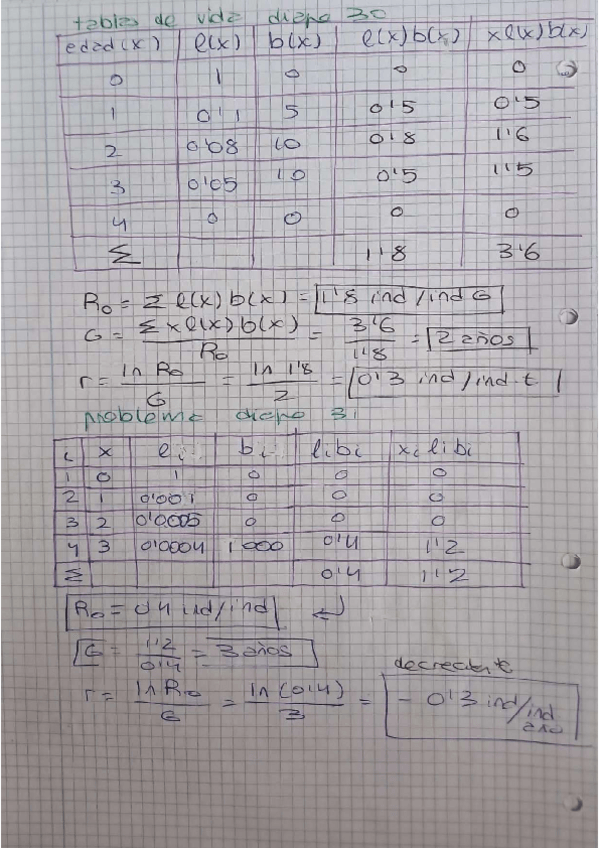 tablas de vida diapo 30
edad(x) l(x) b(x) l(x)b(x) xl(x)b(x)
0 1 0 0 0
1 0'1 5 0'5 0'5
2 0'08 10 0'8 1'6
3 0'05 10 0'5 1'5
4 0 0 0 0
Σ 1'8 3'6
R₀ = Σ l(x) b(x) = 1'8 ind/ind G
G = Σ x l(x) b(x) / R₀ = 3'6 / 1'8 = 2 años
r = ln R₀ / G = ln 1'8 / 2 = 0'3 ind/ind·t
problema diapo 31
i x li bi libi xi libi
1 0 1 0 0 0
2 1 0'001 0 0 0
3 2 0'0005 0 0 0
4 3 0'0004 1000 0'4 1'2
Σ 0'4 1'2
R₀ = 0'4 ind/ind ↵
G = 1'2 / 0'4 = 3 años
decreciente
r = ln R₀ / G = ln(0'4) / 3 = - 0'3 ind/ind año